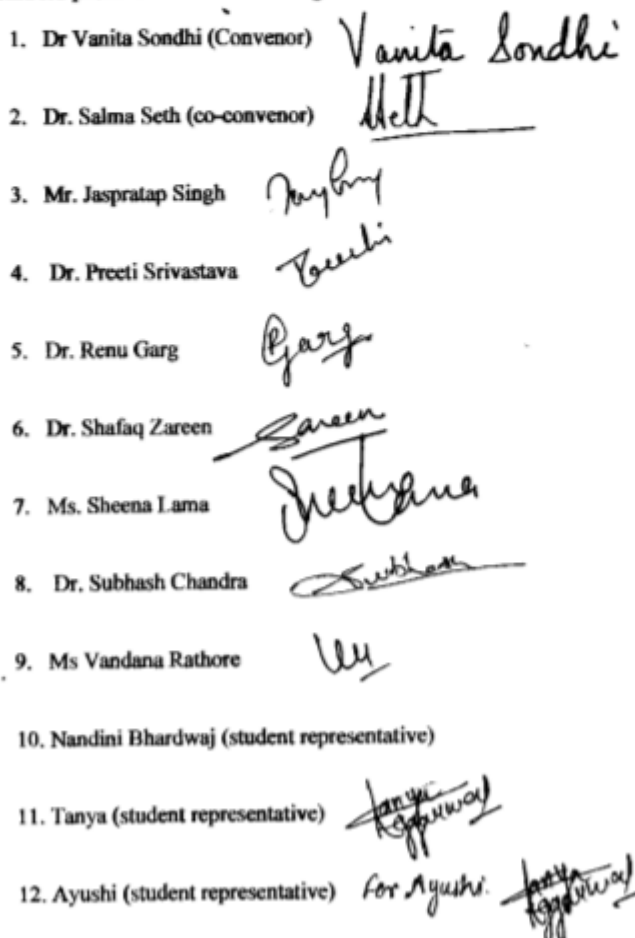 1. Dr Vanita Sondhi (Convenor) Vanita Sondhi
2. Dr. Salma Seth (co-convenor)
3. Mr. Jaspratap Singh
4. Dr. Preeti Srivastava
5. Dr. Renu Garg Garg
6. Dr. Shafaq Zareen Zareen
7. Ms. Sheena Lama
8. Dr. Subhash Chandra Subhash
9. Ms Vandana Rathore
10. Nandini Bhardwaj (student representative)
11. Tanya (student representative) Tanya Aggarwal
12. Ayushi (student representative) For Ayushi. Tanya Aggarwal